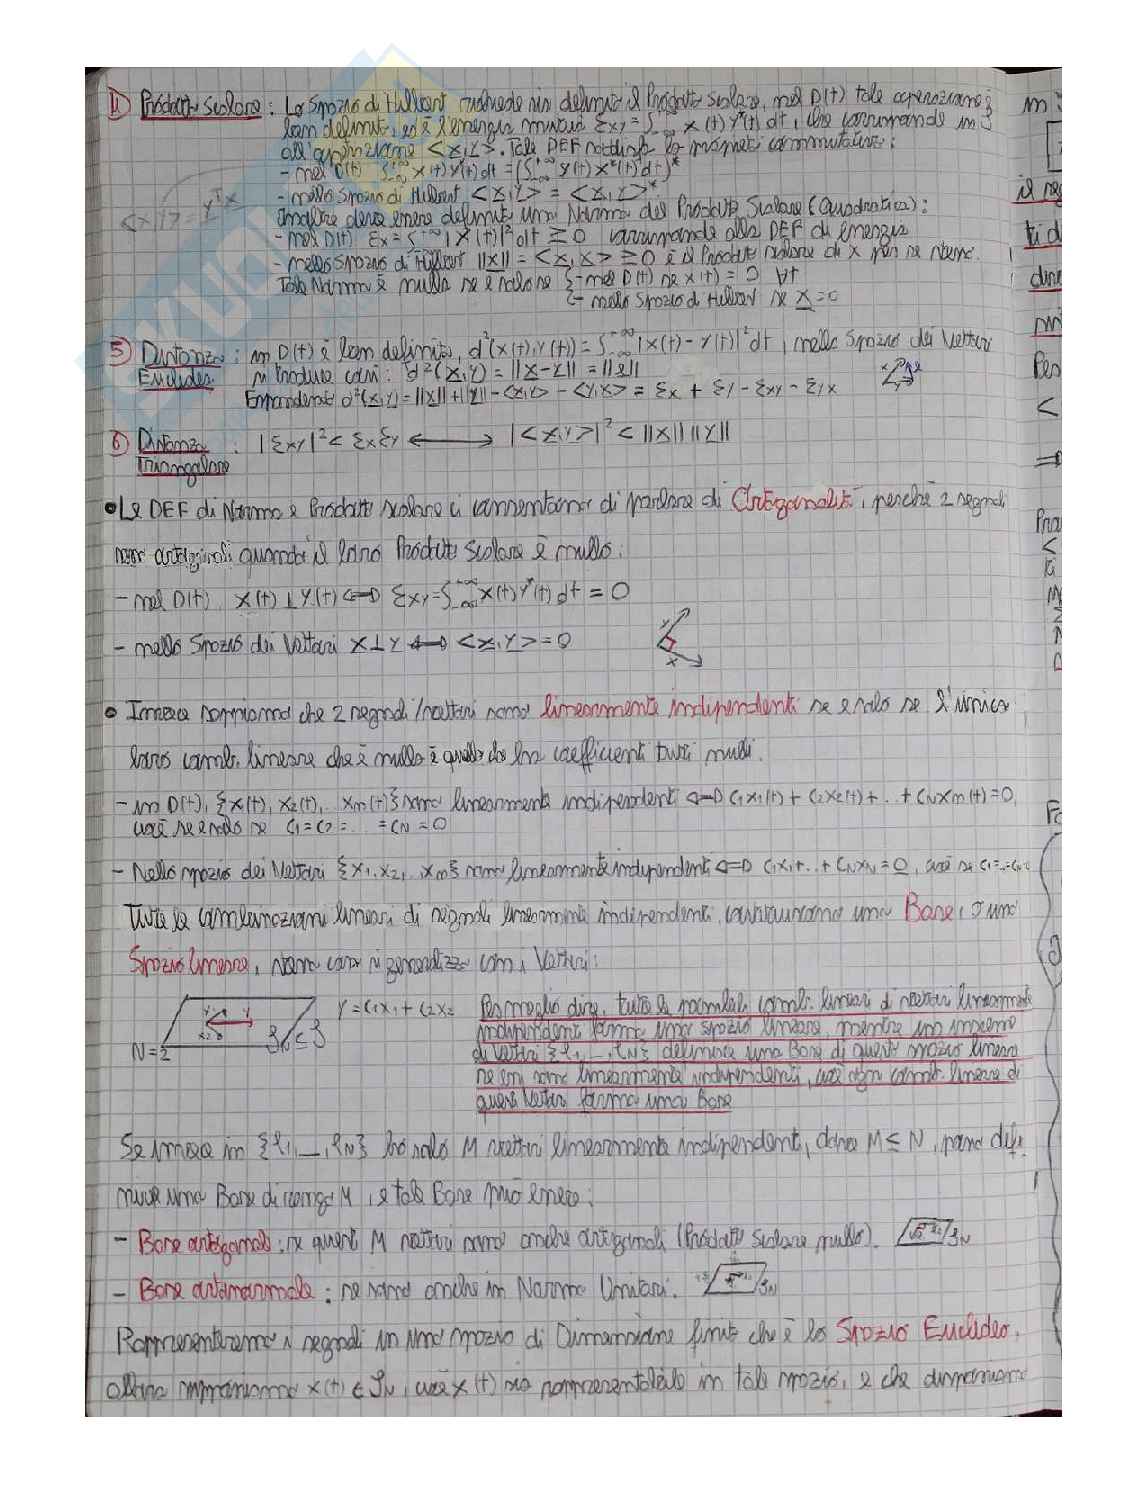 4) Prodotto Scalare: Lo Spazio di Hilbert richiede sia definito il Prodotto Scalare, nel D(t) tale operazione è
ben definita, ed è l'energia mutua Ɛxy = ∫_{-∞}^{+∞} x(t) y*(t) dt, che corrisponde in S
all'operazione <x,y>. Tale DEF soddisfa la propriet commutativa:
- nel D(t) ∫_{-∞}^{+∞} x(t) y*(t) dt = (∫_{-∞}^{+∞} y(t) x*(t) dt)*
<x,y> = y^T x
- nello Spazio di Hilbert <x,y> = <x,y>*
Inoltre deve essere definita una Norma del Prodotto Scalare (Quadratica):
- nel D(t) Ɛx = ∫_{-∞}^{+∞} |x(t)|² dt ≥ 0 corrisponde alla DEF di energia
- nello Spazio di Hilbert ||x|| = <x,x> ≥ 0 è il Prodotto scalare di x per se stesso.
Tale Norma è nulla se e solo se { - nel D(t) se x(t) = 0 ∀t
- nello Spazio di Hilbert se x = 0
5) Distanza Euclidea: in D(t) è ben definita, d²(x(t),y(t)) = ∫_{-∞}^{+∞} |x(t) - y(t)|² dt, nello Spazio dei Vettori
si traduce così: d²(x,y) = ||x-y|| = ||z||
Espandendo d²(x,y) = ||x|| + ||y|| - <x,y> - <y,x> = Ɛx + Ɛy - Ɛxy - Ɛyx
6) Distanza Triangolare: |Ɛxy|² < ƐxƐy ⟷ |<x,y>|² < ||x|| ||y||
• Le DEF di Norma e Prodotto scalare ci consentono di parlare di Ortogonalità, perché 2 segnali
sono ortogonali quando il loro Prodotto Scalare è nullo:
- nel D(t) x(t) ⊥ y(t) ⟺ Ɛxy = ∫_{-∞}^{+∞} x(t) y*(t) dt = 0
- nello Spazio dei Vettori x ⊥ y ⟺ <x,y> = 0
y
x
• Invece sappiamo che 2 segnali/vettori sono linearmente indipendenti se e solo se l'unica
loro comb. lineare che è nulla è quella che ha coefficienti tutti nulli.
- in D(t), {x(t), x2(t), .. xm(t)} sono linearmente indipendenti ⟺ c1x1(t) + c2x2(t) + .. + cNxm(t) = 0,
cioè se e solo se c1 = c2 = .. = cN = 0
- Nello spazio dei Vettori {x1, x2, .. xm} sono linearmente indipendenti ⟺ c1x1 + .. + cNxN = 0, cioè se c1 = .. = cN=0
Tutte le combinazioni lineari di segnali linearmente indipendenti costituiscono una Base, o uno
Spazio lineare, stessa cosa si generalizza con i Vettori:
N=2
y = c1x1 + c2x2
Per meglio dire, tutte le possibili comb. lineari di vettori linearmente
indipendenti forma uno spazio lineare, mentre un insieme
di vettori {f1, .. , fN} definisce una Base di questo spazio lineare
se essi sono linearmente indipendenti, cioè ogni comb. lineare di
questi Vettori forma una Base
Se invece in {f1, .. , fN} ho solo M vettori linearmente indipendenti, dove M ≤ N, posso defi-
nire una Base di rango M, e tale Base può essere:
- Base ortogonale: se questi M vettori sono anche ortogonali (Prodotto Scalare nullo). SN
- Base ortonormale: se sono anche in Norma Unitari. SN
Rappresenteremo i segnali in uno spazio di Dimensione finita che è lo Spazio Euclideo,
allora supponiamo x(t) ∈ SN, cioè x(t) sia rappresentabile in tale spazio, e che disponiamo